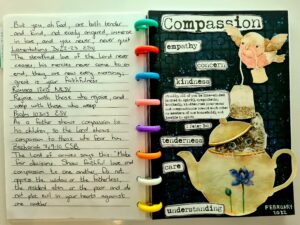 But you, oh God, are both tender
and kind, not easily angered, immense
in love, and you never, never quit
Lamentations 3v22-23 ESV
The steadfast love of the Lord never
ceases; his mercies never come to an
end; they are new every morning;
great is your faithfulness
Romans 12v15 NRSV
Rejoice with those who rejoice, and
weep with those who weep
Psalm 103v13 ESV
As a father shows compassion to
his children, so the Lord shows
compassion to those who fear him.
Zechariah 7v9-10 CSB
The Lord of armies says this: "Make
fair decisions. Show faithful love and
compassion to one another. Do not
oppress the widow or the fatherless,
the resident alien or the poor, and do
not plot evil in your hearts against
one another
Compassion
empathy
concern
kindness
tenderness
care
understanding
FEBRUARY
2022